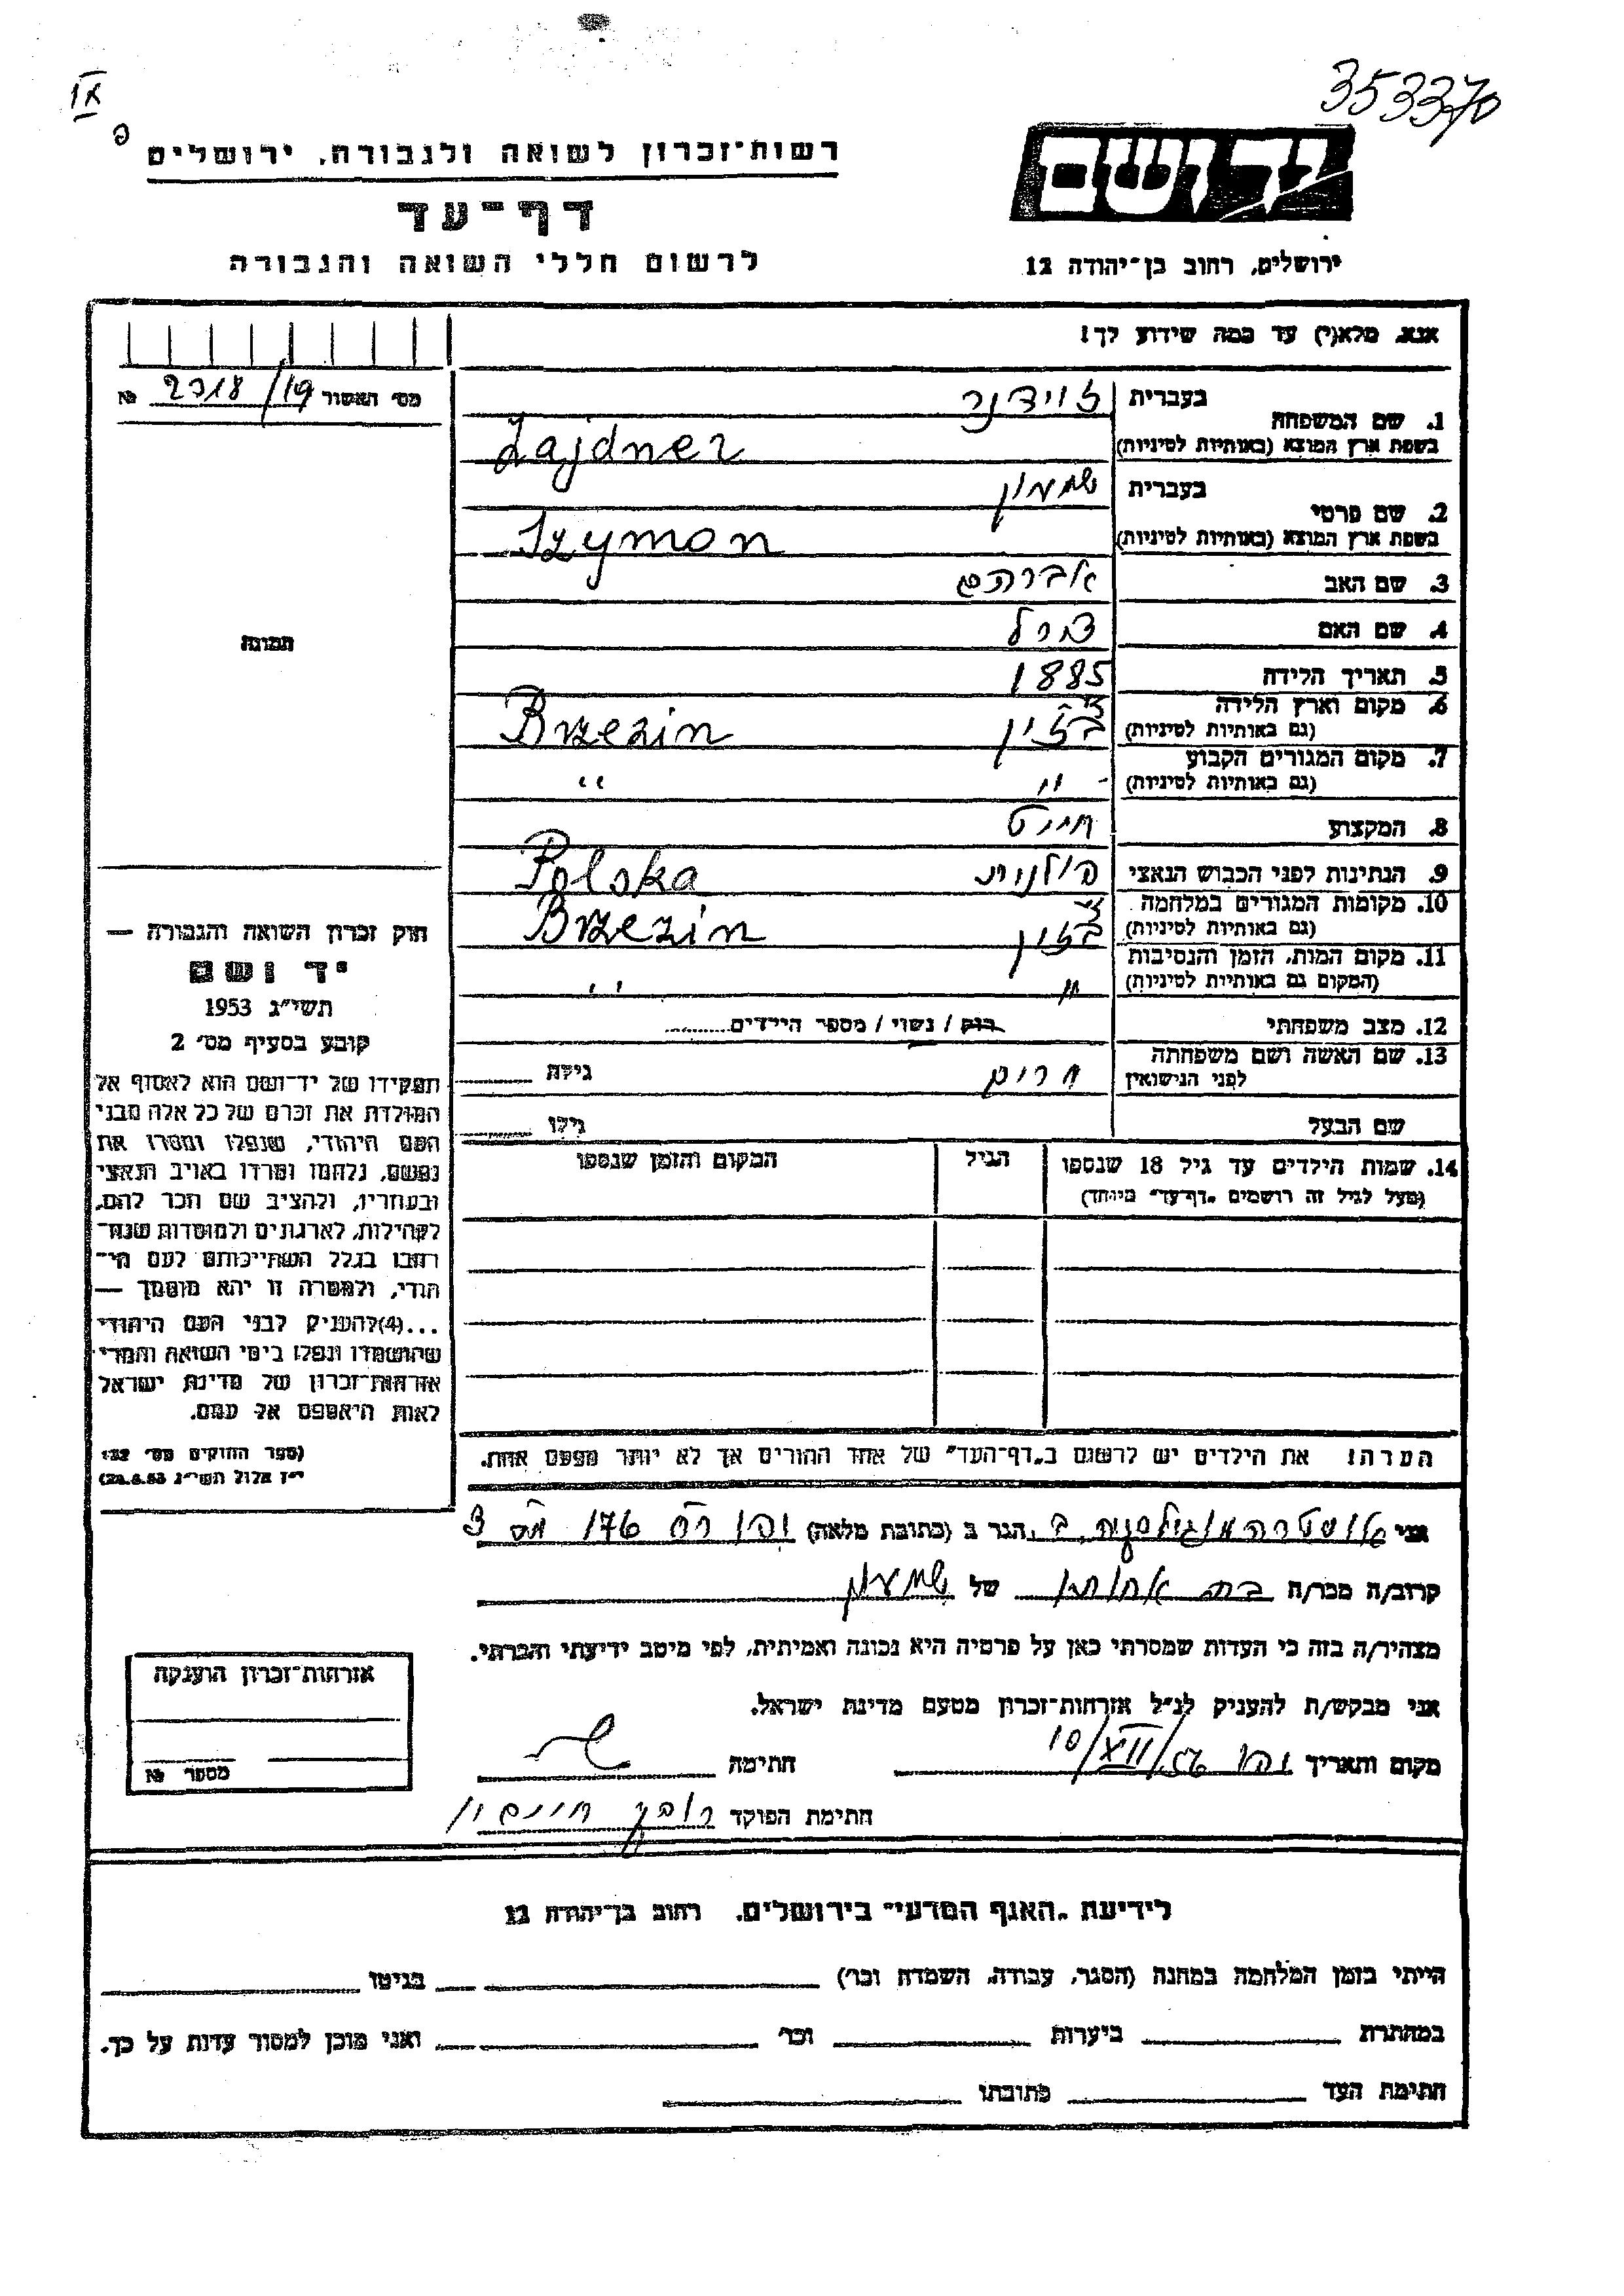 35337
רשות־זכרון לשואה ולגבורה, ירושלים
דף־עד
לרשום חללי השואה והגבורה
יד ושם
ירושלים, רחוב בן־יהודה 12
אנא, מלא(י) עד כמה שידוע לך!
מס׳ האשור 2318/19 №
תמונה
בעברית זיידנר
1. שם המשפחה
בשפת ארץ המוצא (באותיות לטיניות) Zajdner
בעברית שמעון
2. שם פרטי
בשפת ארץ המוצא (באותיות לטיניות) Szymon
3. שם האב אברהם
4. שם האם
5. תאריך הלידה 1885
6. מקום וארץ הלידה
(גם באותיות לטיניות) Brzezin
7. מקום המגורים הקבוע
(גם באותיות לטיניות) " "
8. המקצוע חייט
9. הנתינות לפני הכבוש הנאצי פולנית Polska
10. מקומות המגורים במלחמה
(גם באותיות לטיניות) Brzezin
11. מקום המות, הזמן והנסיבות
(המקום גם באותיות לטיניות) " "
12. מצב משפחתי רווק / נשוי / מספר הילדים
13. שם האשה ושם משפחתה
לפני הנישואין גילה
שם הבעל גילו
14. שמות הילדים עד גיל 18 שנספו הגיל המקום והזמן שנספו
(מעל לגיל זה רושמים „דף־עד” מיוחד)
הערה: את הילדים יש לרשום ב„דף־העד” של אחד ההורים אך לא יותר מפעם אחת.
חוק זכרון השואה והגבורה —
יד ושם
תשי״ג 1953
קובע בסעיף מס׳ 2
תפקידו של יד־ושם הוא לאסוף אל
המולדת את זכרם של כל אלה מבני
העם היהודי, שנפלו ומסרו את
נפשם, נלחמו ומרדו באויב הנאצי
ובעוזריו, ולהציב שם וזכר להם,
לקהילות, לארגונים ולמוסדות שנח־
רבו בגלל השתייכותם לעם הי־
הודי, ולמטרה זו יהא מוסמך —
...(4)להעניק לבני העם היהודי
שהושמדו ונפלו בימי השואה והמרי
אזרחות־זכרון של מדינת ישראל
לאות היאספם אל עמם.
(ספר החוקים מס׳ 132
י״ז אלול תשי״ג 28.8.53)
אני הגר ב (כתובת מלאה) 176 3
קרוב/ה מכר/ה בת אחותו של שמעון
מצהיר/ה בזה כי העדות שמסרתי כאן על פרטיה היא נכונה ואמיתית, לפי מיטב ידיעתי והכרתי.
אני מבקש/ת להעניק לנ״ל אזרחות־זכרון מטעם מדינת ישראל.
מקום ותאריך 10/XII/56 חתימה
חתימת הפוקד
אזרחות־זכרון הוענקה
מספר №
לידיעת „האגף המדעי” בירושלים, רחוב בן־יהודה 12
הייתי בזמן המלחמה במחנה (הסגר, עבודה, השמדה וכו׳) בגיטו
במחתרת ביערות וכו׳ ואני מוכן למסור עדות על כך.
חתימת העד כתובתו